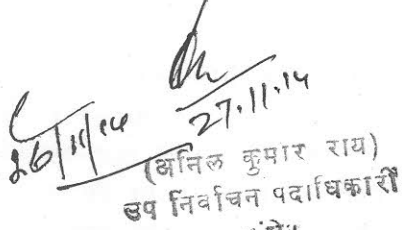 26/11/14
27.11.14
(अनिल कुमार राय)
उप निर्वाचन पदाधिकारी